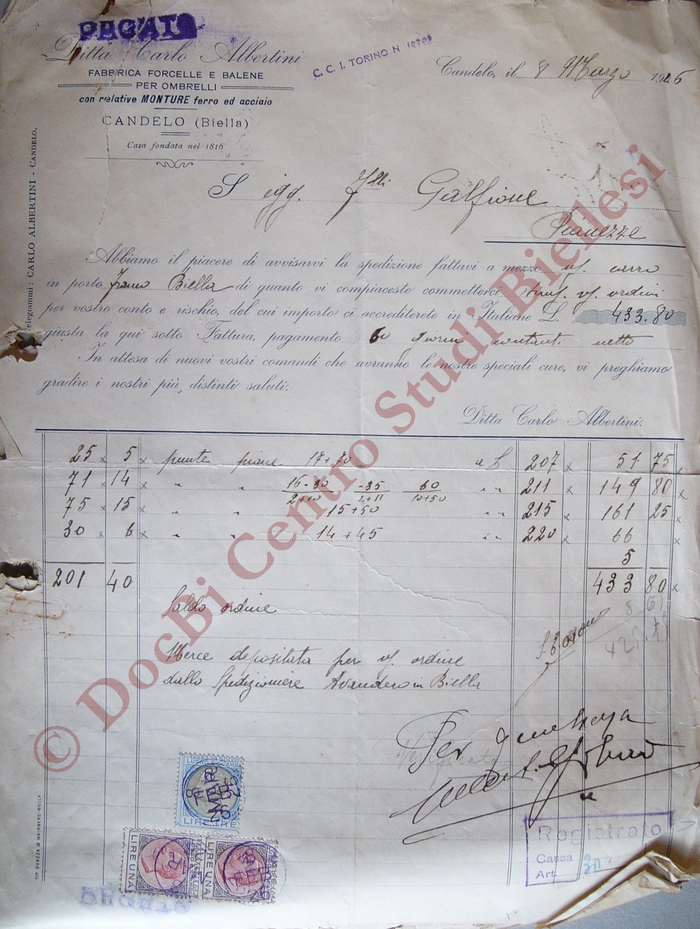 PAGATO
Ditta Carlo Albertini
FABBRICA FORCELLE E BALENE
PER OMBRELLI
con relative MONTURE ferro ed acciaio
CANDELO (Biella)
Casa fondata nel 1816
C. C. I. TORINO N
Candelo, il 8 Marzo 1926
Telegrammi: CARLO ALBERTINI - CANDELO.
Sigg. Flli Galfione
Pianezze
Abbiamo il piacere di avvisarvi la spedizione fattavi a mezzo vs. carro
in porto franco Biella di quanto vi compiaceste commetterci vs. ordini
per vostro conto e rischio, del cui importo ci accrediterete in Italiane L. 433.80
giusta la qui sotto Fattura, pagamento 60 giorni contanti netto
In attesa di nuovi vostri comandi che avranno le nostre speciali cure, vi preghiamo
gradire i nostri più distinti saluti.
Ditta Carlo Albertini.
25 5 x punte 17+50 a L 207 x 51 75
71 14 x " " 60 " " 211 x 149 80
75 15 x " " 15+50 " " 215 x 161 25
30 6 x " " 14+45 " " 220 x 66
5
201 40 433 80
Saldo ordine
Merce depositata per vs. ordine
dallo Spedizioniere Avandero in Biella
Per
LIRE DUE
LIRE UNA LIRE UNA
Registrato
Cassa
Art.
PAGATO
© DocBi Centro Studi Biellesi